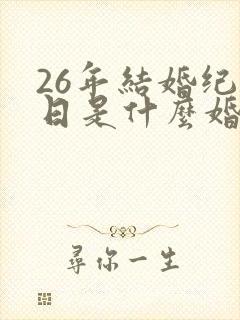 26年結婚纪
日是什麼婚
尋你一生